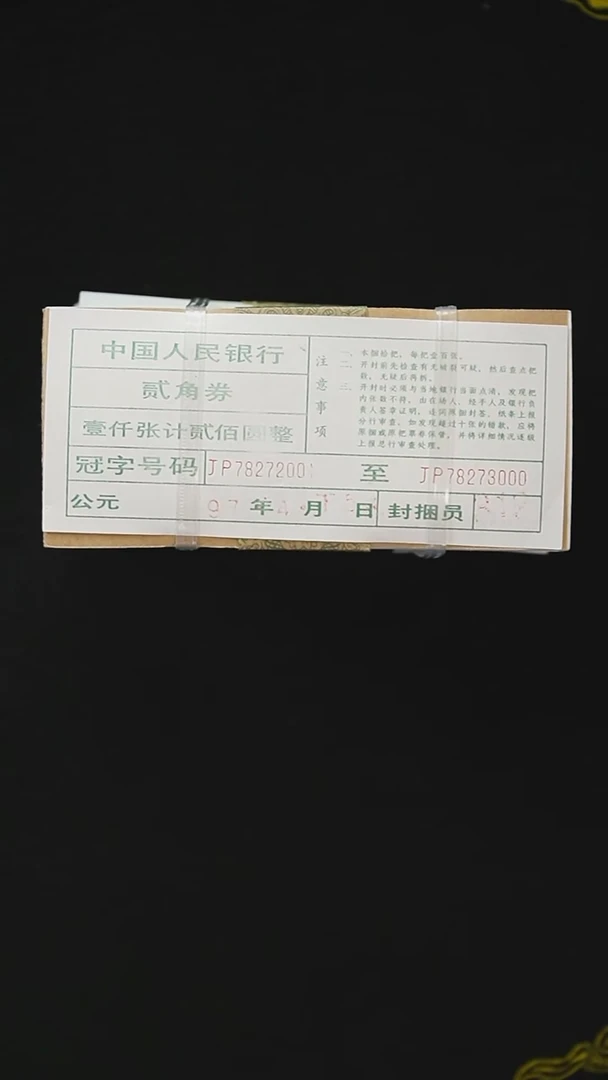 中国人民银行
贰角券
壹仟张计贰佰圆整
注意事项
一、本捆拾把，每把壹百张。
二、开封前先检查有无破裂可疑，然后查点把
数，无疑后再拆。
三、开封时必须与当地银行当面点清，发现把
内张数不符，由在场人，经手人及银行负
责人签章证明，连同原捆封签，纸条上报
分行审查，如发现超过十张的错款，应将
原捆或原把票券保管，并将详细情况逐级
上报总行审查处理。
冠字号码 JP78272001 至 JP78273000
公元 97 年 月 日 封捆员